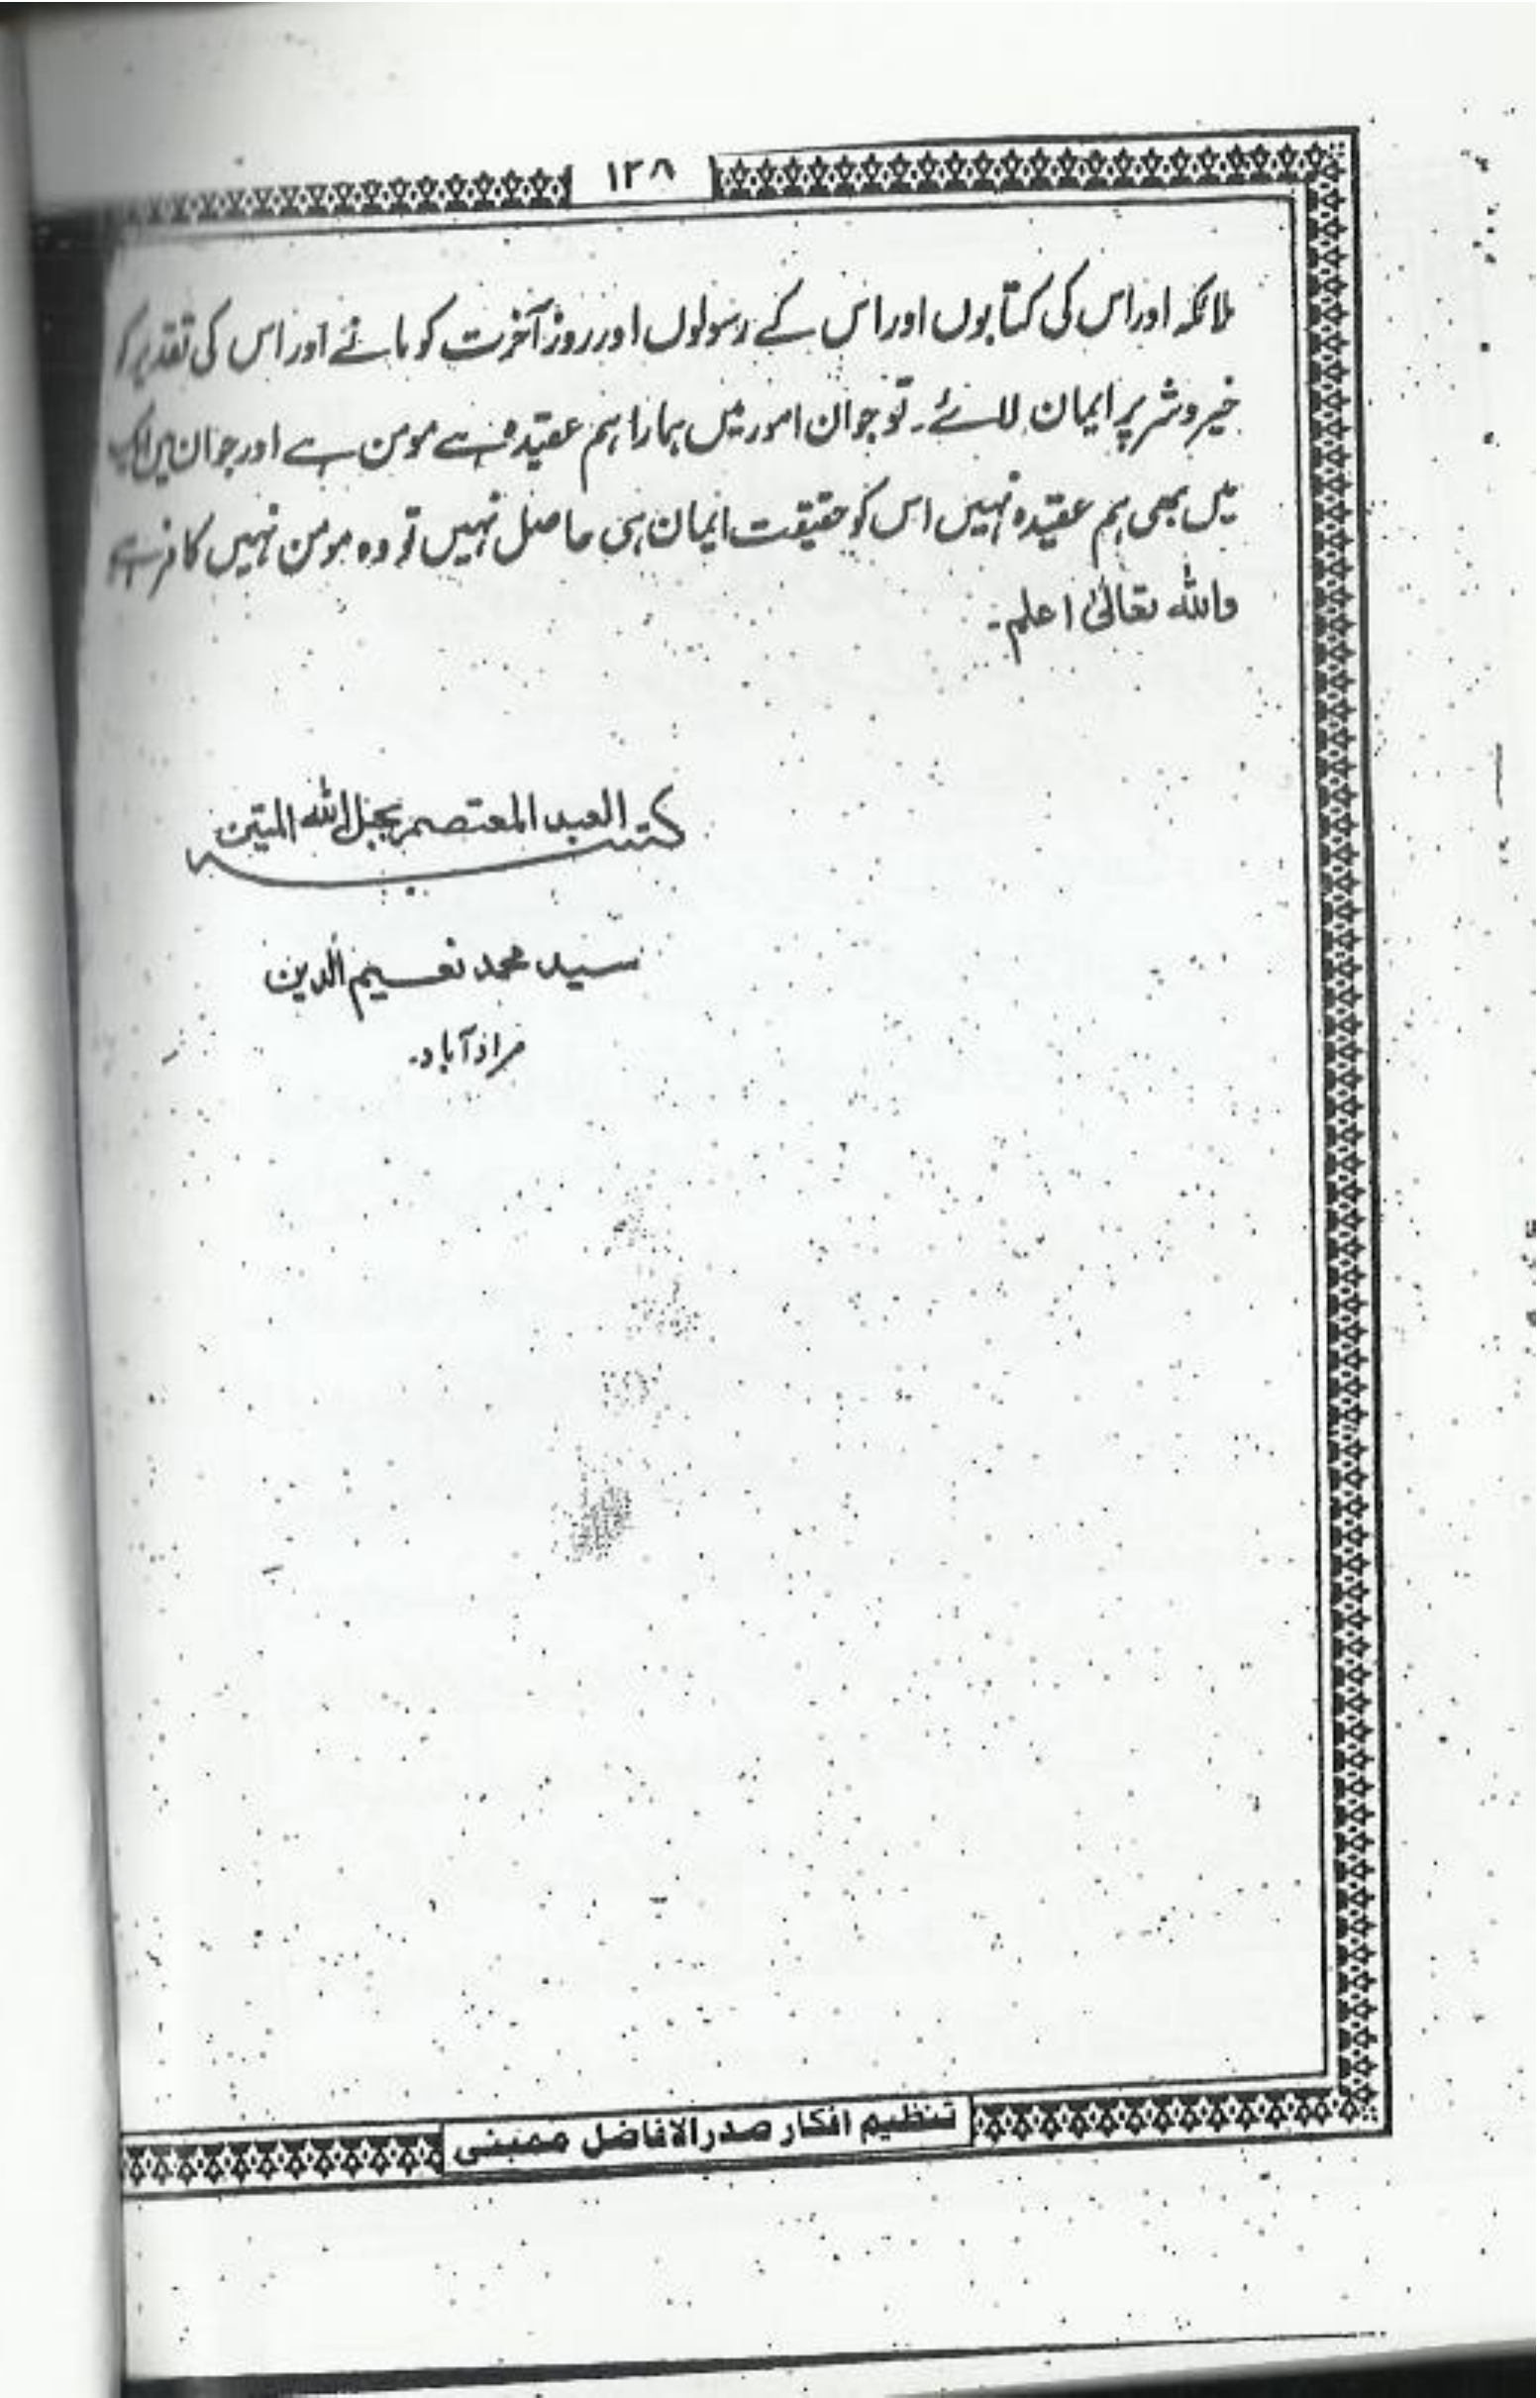 ۱۲۸
ملائکہ اور اس کی کتابوں اور اس کے رسولوں اور روز آخرت کو مانے اور اس کی تقدیر کو
خیر و شر پر ایمان لائے۔ تو جو ان امور میں ہمارا ہم عقیدہ ہے مومن ہے اور جو ان میں ایک
میں بھی ہم عقیدہ نہیں اس کو حقیقت ایمان ہی حاصل نہیں تو وہ مومن نہیں کافر ہے
واللہ تعالیٰ اعلم۔
کتبہ العبد المعتصم بحبل اللہ المتین
سید محمد نعیم الدین
مراد آباد۔
تنظیم افکار صدر الافاضل ممبئی